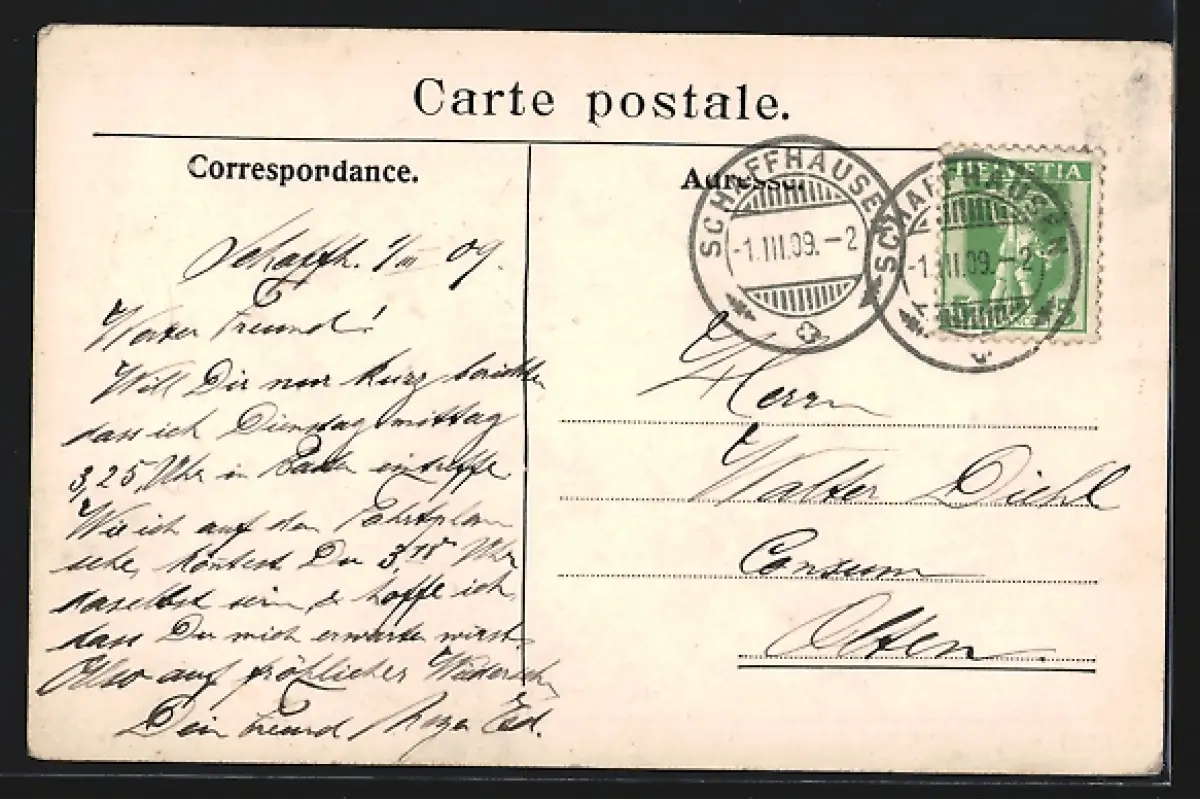 Carte postale.
Correspondance.
Adresse.
SCHAFFHAUSEN
-1.III.09.-2
SCHAFFHAUSEN
-1.III.09.-2
HELVETIA
5 5
Schaffh. 1/III 09.
Werter Freund!
Will Dir nur kurz berichten
dass ich Dienstag mittag
3,25 Uhr in Baden eintreffe
Wie ich auf dem Fahrtplan
sehe, köntest Du 3 Uhr
daselbst sein & hoffe ich
dass Du mich erwarten wirst
Also auf fröhliches Wiedersehn
Dein Freund Ed.
Herrn
Walter Diehl
Consum
Olten.